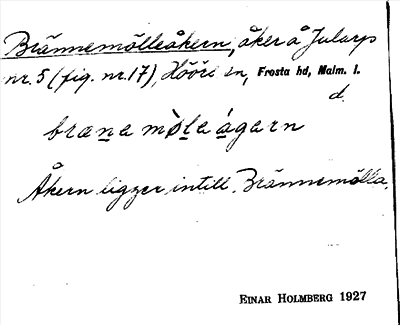 Brännemölleåkern, åker å Jularp
nr. 5 (fig. nr. 17), Höörs sn, Frosta hd, Malm. l.
d.
brana möle ágarn
Åkern ligger intill Brännemölla.
EINAR HOLMBERG 1927